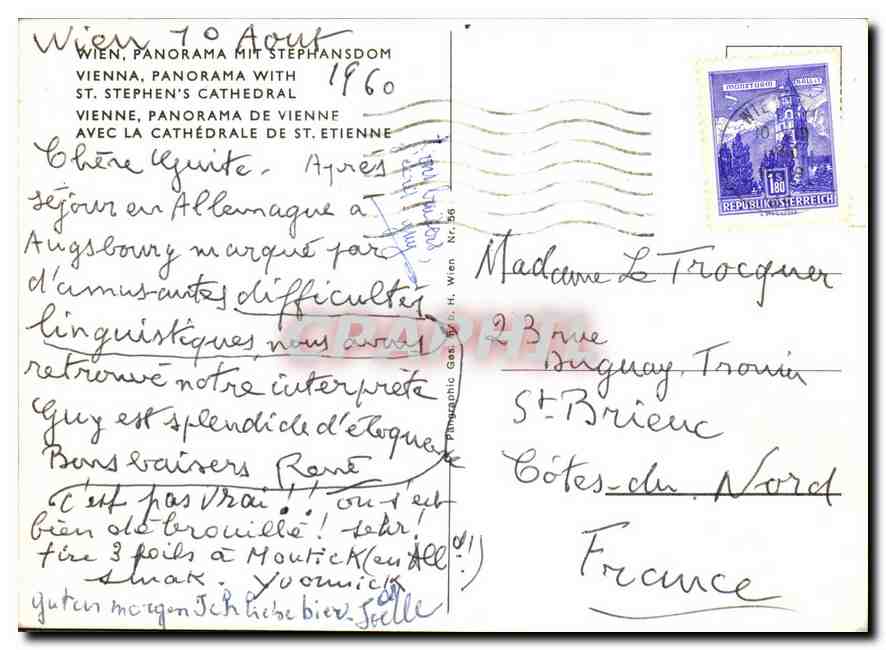 Wien 10 Aout
1960
WIEN, PANORAMA MIT STEPHANSDOM
VIENNA, PANORAMA WITH
ST. STEPHEN'S CATHEDRAL
VIENNE, PANORAMA DE VIENNE
AVEC LA CATHÉDRALE DE ST. ETIENNE
Chère Guite. Après
séjour en Allemagne à
Augsbourg marqué par
d'amusantes difficultés
linguistiques nous avons
retrouvé notre interprète
Guy est splendide d'éloquence
Bons baisers René
C'est pas vrai!! on s'est
bien débrouillé! sehr!
tire 3 poils à Moutick (en All
d!)
smak. Yvonnick
guten morgen Ich liebe bier Joëlle
Bons baisers,
Guy
Pangraphic Ges. m. b. H. Wien Nr. 56
MÜNZTURM HALL I. T.
WIEN
1S80
REPUBLIK ÖSTERREICH
Madame Le Trocquer
23 rue
Duguay. Trouin
St-Brieuc
Côtes-du Nord
France
CPAPHIL